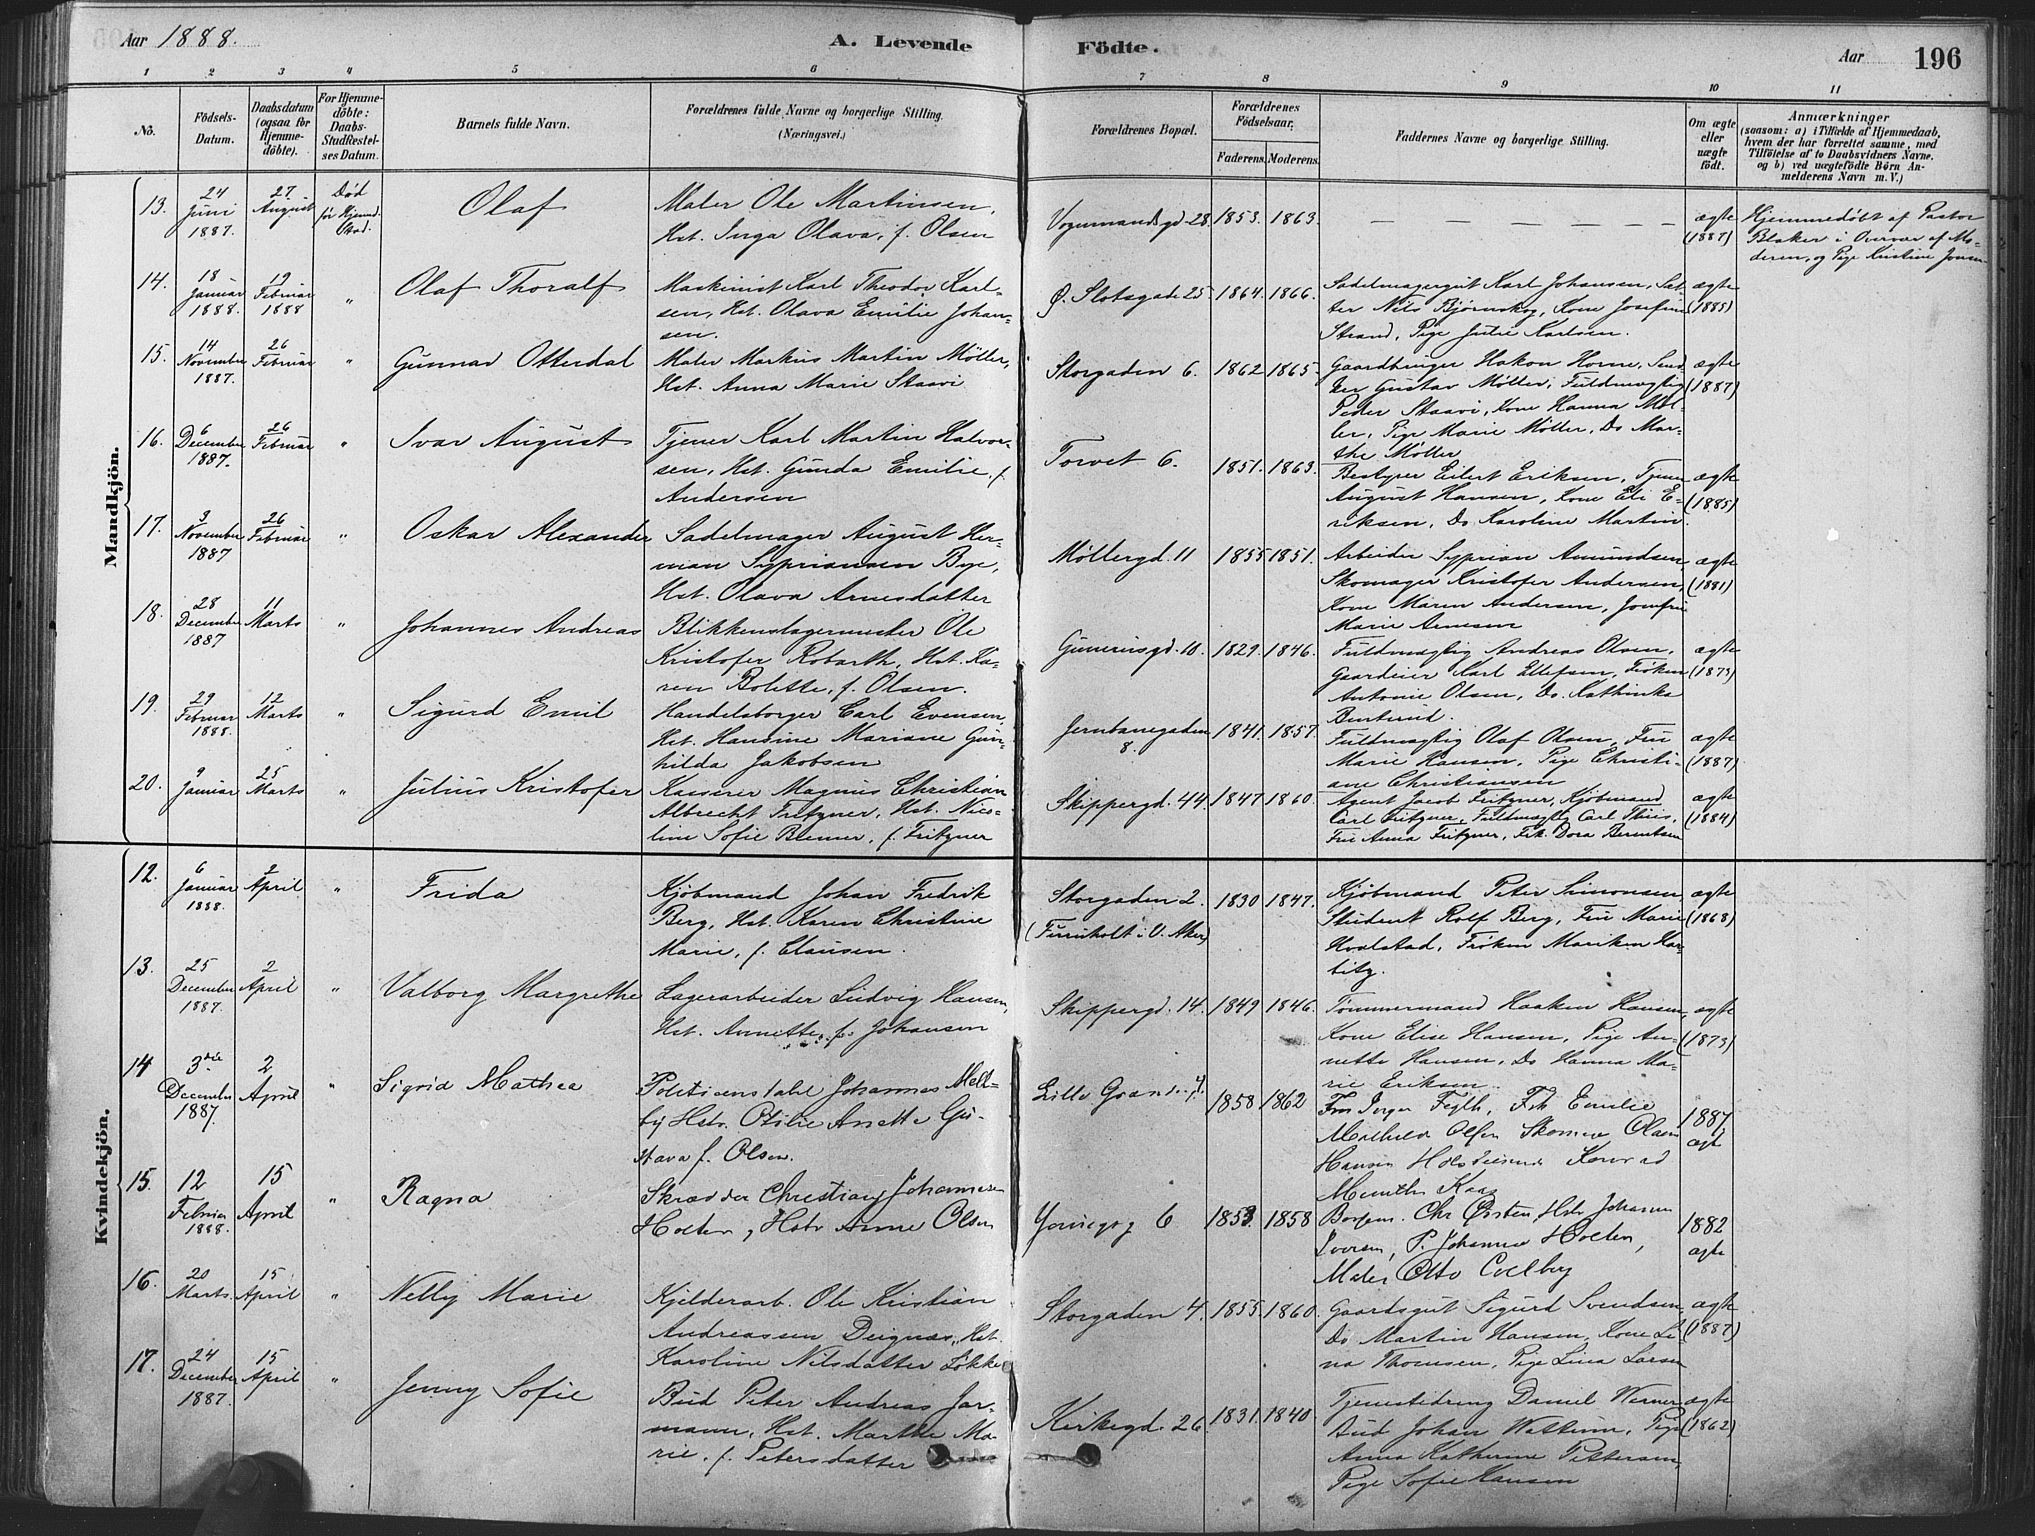 Aar 1888.
A. Levende Födte.
Aar 196
1 2 3 4 5 6 7 8 9 10 11
No.
Födsels-Datum.
Daabsdatum (ogsaa for Hjemmedöbte).
For Hjemmedöbte: Daabs-Stadfæstelses Datum.
Barnets fulde Navn.
Forældrenes fulde Navne og borgerlige Stilling. (Næringsvei.)
Forældrenes Bopæl.
Forældrenes Födselsaar.
Faderens. Moderens.
Faddernes Navne og borgerlige Stilling.
Om ægte eller uægte födt.
Anmærkninger
(saasom: a) i Tilfælde af Hjemmedaab,
hvem der har forrettet samme, med
Tilföielse af to Daabsvidners Navne,
og b) ved uægtefödte Börn An-
melderens Navn m. V.)
Mandkjön.
13. 24 Juni 1887. 27 August Död før Hjemme
Olaf
Maler Ole Martinsen,
Hst. Inga Olava, f. Olsen
Vognmandsgd 28. 1853. 1863.
ægte (1887)
Hjemmedøbt af Pastor
Blaker i Overvær af Mo-
deren, og Pige Kristine
14. 18 Januar 1888. 19 Februar 1888 "
Olaf Thoralf
Maskinist Karl Theodor Karl-
sen, Hst. Olava Emilie Johan-
sen.
Ø. Slotsgade 25 1864. 1866.
Sadelmagergut Karl Johansen, Sæt-
ter Nils Bjørnskog, Kone Josefine
Strand, Pige Julie Karlsen.
ægte (1885)
15. 14 November 1887. 26 Februar "
Gunnar Otterdal
Maler Markus Martin Møller,
Hst. Anna Marie Staavi
Storgaden 6. 1862 1865.
Gaardbruger Hakon Horne,
Gustav Møller, Fuldmægtig
Peder Staavi, Kone Hanna Møl-
ler, Pige Marie Møller, Do Mar-
the Møller
ægte (1887)
16. 6 December 1887. 26 Februar "
Ivar August
Tjener Karl Martin Halvor-
sen, Hst. Gunda Emilie, f.
Andersen
Torvet 6. 1851. 1863.
Bestyrer Eilert Eriksen, Tjener
August Hansen, Kone Eli E-
riksen, Do Karoline Martin.
ægte (1885)
17. 3 November 1887 26 Februar "
Oskar Alexander
Sadelmager August Her-
man Syprianson Bye,
Hst. Olava Arnesdatter
Møllergd. 11 1855 1851.
Arbeider Syprian Amundsen,
Skomager Kristofer Andersen,
Kone Maren Andersen, Jomfru
Marie Arnesen
ægte (1881)
18. 28 December 1887 11 Marts "
Johannes Andreas
Blikkenslagermester Ole
Kristofer Robarth, Hst. Ka-
ren Bolette, f. Olsen.
Gunerusgd. 10. 1829. 1846.
Fuldmægtig Andreas Olsen,
Gaardeier Karl Ellefsen, Frøken
Antonie Olsen, Do. Kathinka
ægte (1873)
19. 29 Februar 1888. 12 Marts "
Sigurd Emil
Handelsborger Carl Evensen,
Hst. Hansine Mariane Gun-
hilda Jakobsen
Jernbanegaden 8. 1841. 1857.
Fuldmægtig Olaf Olsen, Fru
Marie Hansen, Pige Christi-
ane Christiansen
ægte (1887)
20. 9 Januar 25 Marts "
Julius Kristofer
Kasserer Magnus Christian
Albrecht Fritzner, Hst. Nico-
line Sofie Blenner, f. Fritzner
Skippergd. 44 1847 1860.
Agent Jacob Fritzner, Kjøbmand
Carl Fritzner, Fuldmægtig Carl Thiis,
Fru Anna Fritzner, Frk. Dora Berentsen
ægte (1884)
Kvindekjön.
12. 6 Januar 1888. 2 April "
Frida
Kjöbmand Johan Fredrik
Berg, Hst. Karen Christine
Marie, f. Clausen.
Storgaden 2. (Furuholt i V. Aker) 1830 1847.
Kjøbmand Peter Simonsen,
Student Rolf Berg, Fru Marie
Hvalstad, Frøken Mariken Har-
bitz.
ægte (1868)
13. 25 December 1887. 2 April "
Valborg Margrethe
Lagerarbeider Ludvig Hansen,
Hst. Annette, f. Johansen
Skippergd. 14. 1849 1846.
Tømmermand Haaken Hansen,
Kone Elise Hansen, Pige An-
nette Hansen, Do Hanna Ma-
rie Eriksen
ægte (1873)
14 3die December 1887. 2 April "
Sigrid Mathea
Politiconstabel Johannes Mell-
by Hstr. Otilie Anette Gu-
stava f. Olsen.
Lille 1858 1862
Frk Emilie
Olsen
Hansen
1887 ægt
15. 12 Februar 1888. 15 April "
Ragna
Skrædder Christian Johannesen
Holten, Hstr Anne Olsen
6 1853 1858
Chr Østen, Hstr Johanne
Iversen, P. Johanna Holten,
Maler Otto Coelberg
1882 ægte
16. 20 Marts. 15 April "
Nelly Marie
Kjelderarb. Ole Kristian
Andreassen Deignæs, Hst.
Karoline Nilsdatter Løkke
Storgaden 4. 1855 1860.
Gaardsgut Sigurd Svendsen,
Do Martin Hansen, Kone Li-
na Thomsen, Pige Lina Larsen
ægte (1887)
17. 24 December 1887. 15 April "
Jenny Sofie
Bud Peter Andreas Jor-
mann, Hst. Marthe Ma-
rie, f. Petersdatter
Kirkegd. 26 1831. 1840
Tjenestedreng Daniel Werner
Bud Johan Waltum, Pige
Anna Katherine Pettersen,
Pige Sofie Hansen
ægte (1862)